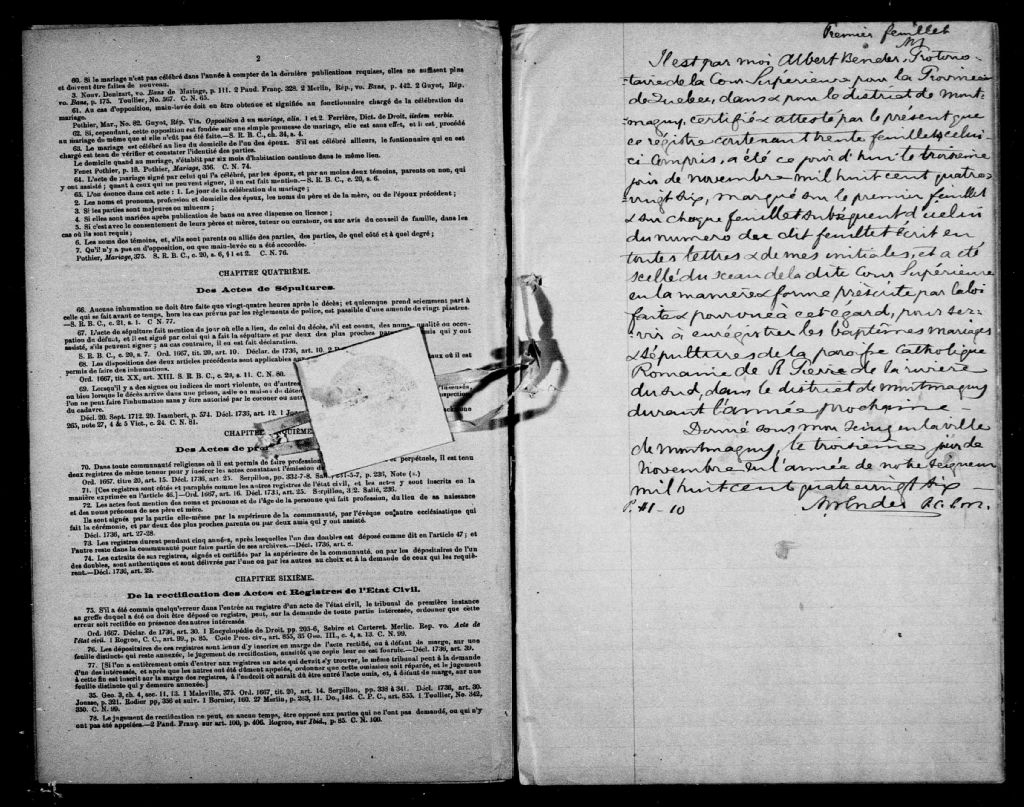 2
60. Si le mariage n'est pas célébré dans l'année à compter de la dernière publications requises, elle ne suffisent plus
et doivent être faites de nouveau.
3. Nouv. Denizart, vo. Bans de Mariage, p. 111. 2 Pand. Franç. 328. 2 Merlin, Rép., vo. Bans, p. 442. 2 Guyot, Rép.
vo. Bans, p. 175. Toullier, No. 567. C. N. 65.
61. Au cas d'opposition, main-levée doit en être obtenue et signifiée au fonctionnaire chargé de la célébration du
mariage.
Pothier, Mar., No. 82. Guyot, Rép. Vis. Opposition à un mariage, alin. 1 et 2. Ferrière, Dict. de Droit, iisdem verbis.
62. Si, cependant, cette opposition est fondée sur une simple promesse de mariage, elle est sans effet, et il est procédé
au mariage de même que si elle n'eût pas été faite.—S. R. B. C., ch. 34, s. 4.
63. Le mariage est célébré au lieu du domicile de l'un des époux. S'il est célébré ailleurs, le fontionnaire qui en est
chargé est tenu de vérifier et constater l'identité des parties.
Le domicile quand au mariage, s'établit par six mois d'habitation continue dans le même lieu.
Fenet Pothier, p. 18. Pothier, Mariage, 356. C. N. 74.
64. L'acte de mariage signé par celui qui l'a célébré, par les époux, et par au moins deux témoins, parents ou non, qui
y ont assisté; quant à ceux qui ne peuvent signer, il en est fait mention.—S. R. B. C., c. 20, s. 6.
65. L'on énonce dans cet acte: 1. Le jour de la célébration du mariage;
2. Les noms et pronoms, profession et domicile des époux, les noms du père et de la mère, ou de l'époux précédent;
3. Si les parties sont majeures ou mineurs;
4. Si elles sont mariées après publication de bans ou avec dispense ou licence;
5. Si c'est avec le consentement de leurs pères et mères, tuteur ou curateur, ou sur avis du conseil de famille, dans les
cas où ils sont requis;
6. Les noms des témoins, et, s'ils sont parents ou alliés des parties, des parties, de quel côté et à quel degré;
7. Qu'il n'y a pas eu d'opposition, ou que main-levée en a été accordée.
Pothier, Mariage, 375. S. R. B. C., c. 20, s. 6, § 1 et 2. C. N. 76.
CHAPITRE QUATRIÈME.
Des Actes de Sépultures.
66. Aucune inhumation ne doit être faite que vingt-quatre heures après le décès; et quiconque prend sciemment part à
celle qui se fait avant ce temps, hors les cas prévus par les règlements de police, est passible d'une amende de vingt piastres.
—S. R. B. C., c. 21, s. 1. C. N. 77.
67. L'acte de sépulture fait mention du jour où elle a lieu, de celui du décès, s'il est connu, des noms, qualité ou occu-
pation du défunt, et il est signé par celui qui a fait la sépulture et par deux des plus proches
assisté, s'ils peuvent signer; au cas contraire, il en est fait déclaration.
S. R. B. C., c. 20, s. 7. Ord. 1667, tit. 20, art. 10. Déclar. de 1736, art. 10.
68. Les dispositions des deux articles précédents sont applicables aux
permis de faire des inhumations.
Ord. 1667, tit. XX, art. XIII. S. R. B. C., c. 23, s. 11. C. N. 80.
69. Lorsqu'il y a des signes ou indices de mort violente, ou d'autres
ou bien lorsque le décès arrive dans une prison, asile ou maison de
l'on ne peut faire l'inhumation sans y être autorisé par le coroner ou
du cadavre.
Décl. 20. Sept. 1712. 20. Isambert, p. 574. Décl. 1736, art. 12.
265, note 27, 4 & 5 Vict., c. 24. C. N. 81.
CHAPITRE CINQUIÈME.
Des Actes de
70. Dans toute communauté religieuse où il est permis de faire profession perpétuels, il est tenu
deux registres de même teneur pour y insérer les actes constatant l'émission
Ord. 1667. titre 20, art. 15. Décl. 1736, art. 25. Serpillon, pp. 332-7-8. p. 236, Note (a.)
71. [Ces registres sont cotés et paraphés comme les autres registres de l'état civil, et les actes y sont inscrits en la
manière exprimée en l'article 46.]—Ord. 1667, art. 16. Décl. 1736, art. 25. Serpillon, 3:2. Salié, 236.
72. Les actes font mention des noms et prénoms et de l'âge de la personne qui fait profession, du lieu de sa naissance
et des noms prénoms de ses père et mère.
Ils sont signés par la partie elle-même par la supérieure de la communauté, par l'évêque ou autre ecclésiastique qui
fait la cérémonie, et par deux des plus proches parents ou par deux amis qui y ont assisté.
Décl. 1736, art. 27-28.
73. Les registres durent pendant cinq années, après lesquelles l'un des doubles est déposé comme dit en l'article 47; et
l'autre reste dans la communauté pour faire partie de ses archives.—Décl. 1736, art. 8.
74. Les extraits de ses registres, signés et certifiés par la supérieure de la communauté, ou par les dépositaires de l'un
des doubles, sont authentiques et sont délivrés par l'une ou par les autres au choix et à la demande de ceux qui les requiè-
rent.—Décl. 1736, art. 29.
CHAPITRE SIXIÈME.
De la rectification des Actes et Registres de l'Etat Civil.
75. S'il a été commis quelqu'erreur dans l'entrée au registre d'un acte de l'état civil, le tribunal de première instance
au greffe duquel a été ou doit être déposé ce registre, peut, sur la demande de toute partie intéressée, ordonner que cette
erreur soit rectifiée en présence des autres intéressés
Ord. 1667. Déclar. de 1736, art. 30. 1 Encyclopédie de Droit, pp. 203-6, Sebire et Carteret. Merlin. Rep. vo. Acte de
l'état civil. 1 Rogron, C. C., art. 99, p. 85. Code Proc. civ., art. 855, 35 Geo. III., c. 4, s. 13. C. N. 99.
76. Les dépositaires de ces registres sont tenus d'y inscrire en marge de l'acte rectifié, ou à défaut de marge, sur une
feuille distincte qui reste annexée, le jugement de rectification, aussitôt que copie leur en est fournie.—Décl. 1736, art. 30.
77. [Si l'on a entièrement omis d'entrer aux registres un acte qui devait s'y trouver, le même tribunal peut à la demande
d'un des intéressés, et après que les autres ont été dûment appelés, ordonner que cette omission soit réparée, et le jugement
à cette fin est inscrit sur la marge des registres, à l'endroit où aurait dû être entré l'acte omis, et, à défaut de marge, sur une
feuille distincte qui y demeure annexée.]
35. Geo. 3, ch. 4, sec. 11, 13. 1 Maleville, 375. Ord. 1667, tit. 20, art. 14. Serpillon, pp. 338 à 341. Décl. 1736, art. 30.
Jousse, p. 321. Rodier pp, 336 et suiv. 1 Bornier, 160. 27 Merlin, p. 263, 11. Do., 148. C. P. C., art. 855. 1 Toullier, No. 342,
350. C. N. 99.
78. Le jugement de rectification ne peut, en aucun temps, être opposé aux parties qui ne l'ont pas demandé, ou qui n'y
ont pas été appelées.—2 Pand. Franç. sur art. 100, p. 406. Rogron, sur Ibid., p. 85. C. N. 100.
Premier feuillet
Il est par moi Albert Bender, Protono-
-taire de la Cour Supérieure pour la Province
de Quebec, dans & pour le district de Mont-
-magny, certifié & attesté par le présent que
ce régistre contenant trente feuillets celui
ci compris, a été ce jour d'hui le troisième
jour de novembre mil huit cent quatre
-vingt six, marqué sur le premier feuillet
& sur chaque feuillet subséquent d'icelui
du numero de dit feuillet écrit en
toutes lettres & de mes initiales, et a été
scellé du sceau de la dite Cour Supérieure
en la manière & forme préscrite par la loi
faite & pourvue a cet égard, pour ser-
vir à enrégistrer les baptêmes mariages
& sépultures de la paroisse Catholique
Romaine de St Pierre de la rivière
du sud, dans le district de montmagny
durant l'année prochaine –
Donné sous mon seing en la ville
de montmagny, le troisième jour de
novembre en l'année de notre seigneur
mil huit cent quatrevingt six
P. 41-10